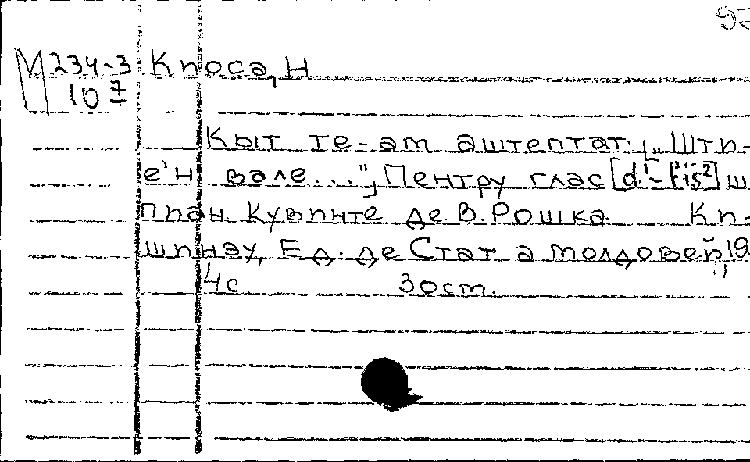 М 234-3 Киоса, Н
10 7
Кыт те-ам аштептат; „Шти-
е'н вале...", Пентру глас [d¹-fis²] ш
пиан. Кувинте де В. Рошка. Ки-
шинэу, Ед. де Стат а Молдовей, 19
4с 30ст.